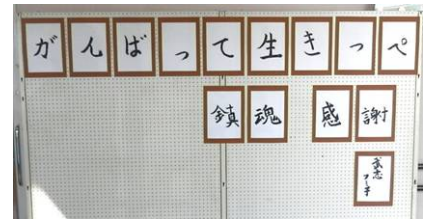 がんばって生きっぺ
鎮魂 感謝